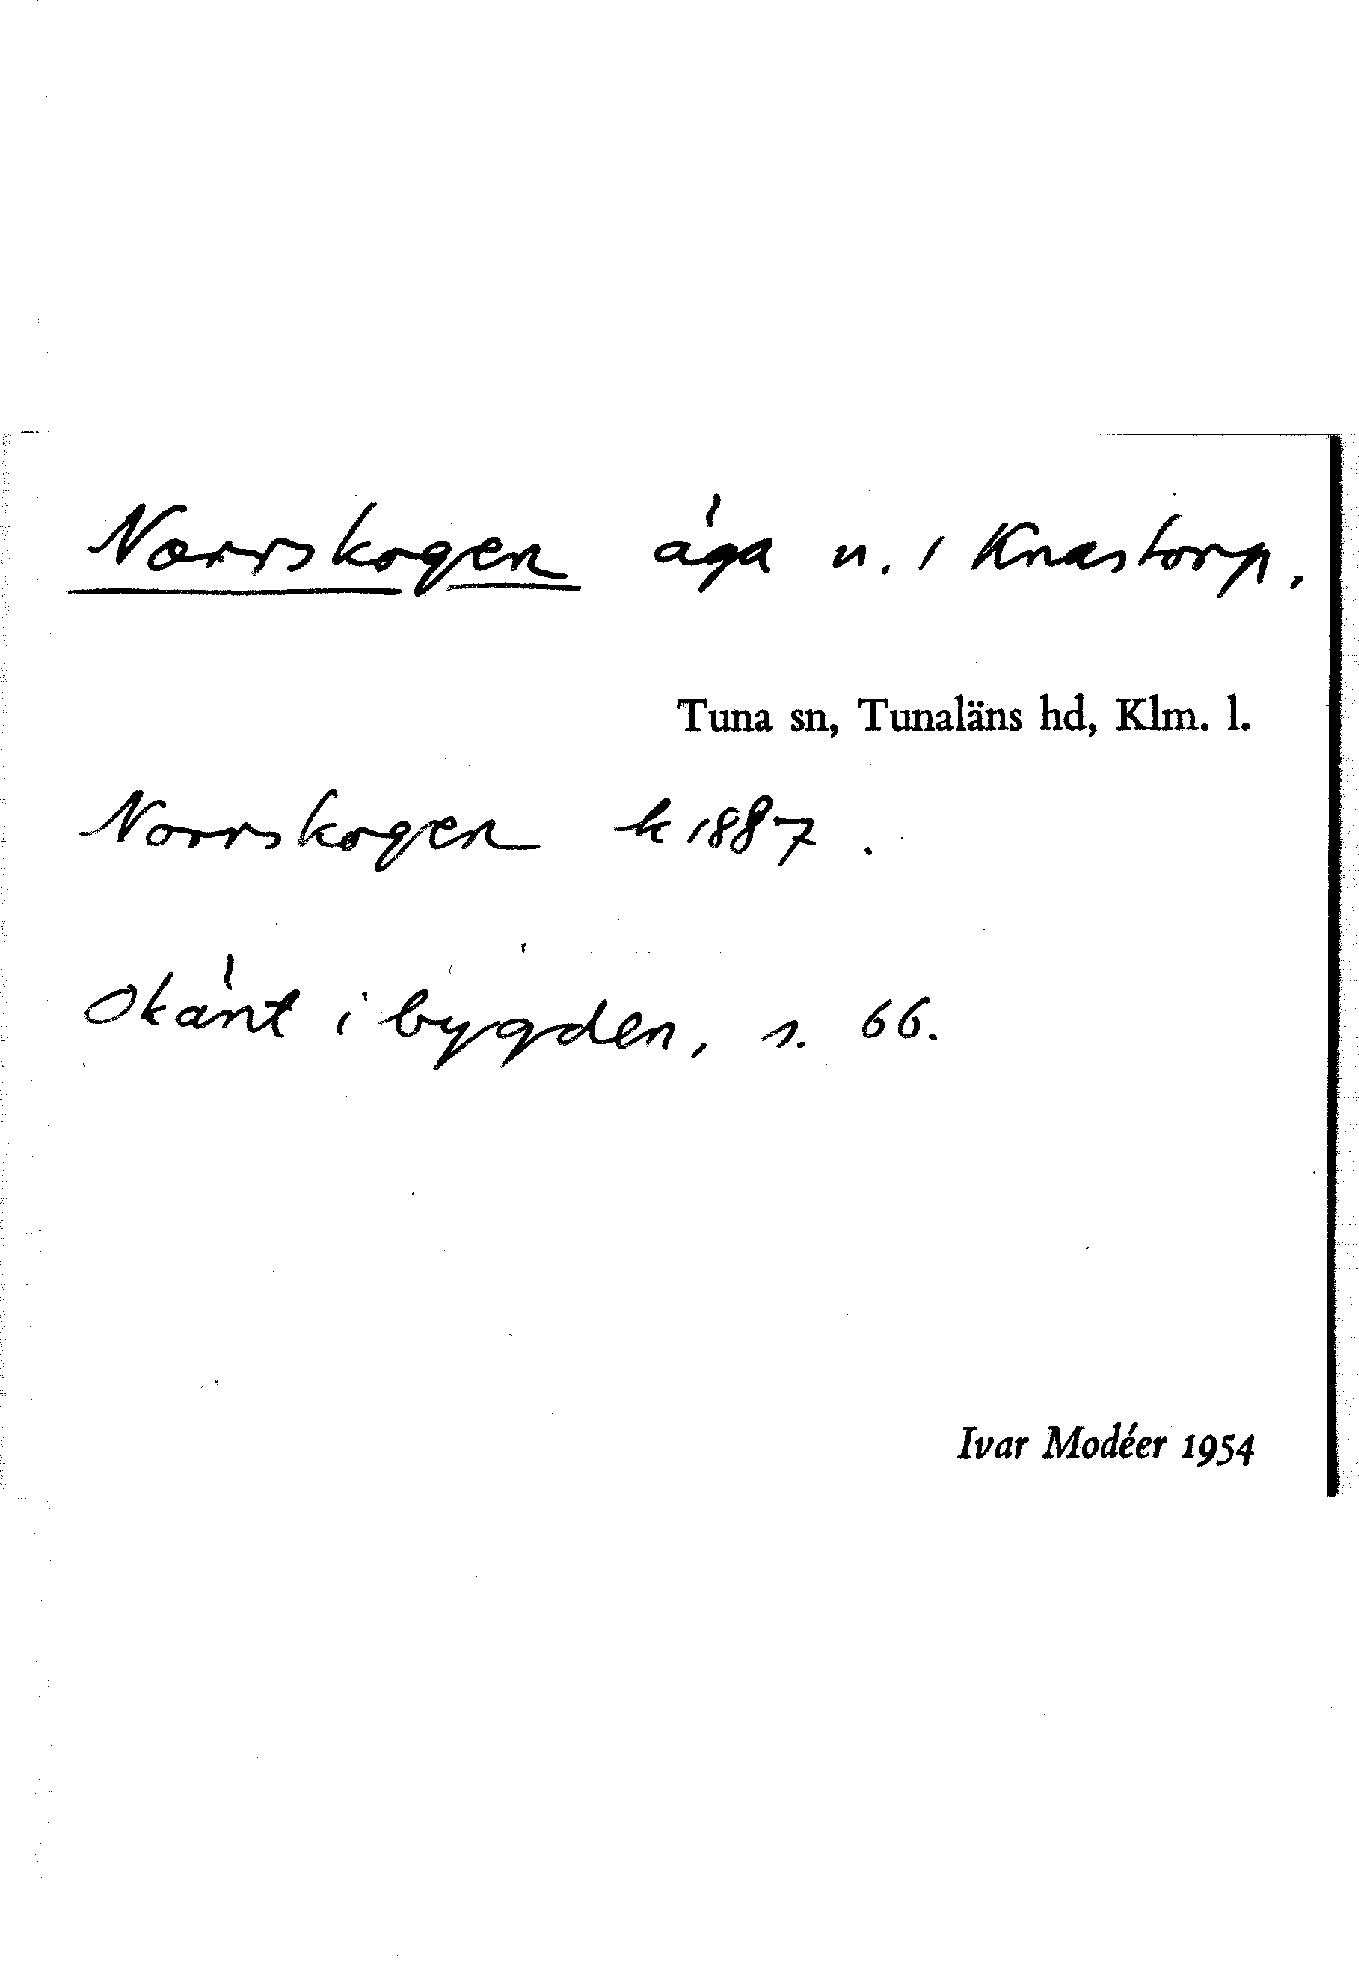 Norrskogen äga u. / Knastorp.
Tuna sn, Tunaläns hd, Klm. l.
Norrskogen k 1887.
Okänt i bygden, s. 66.
Ivar Modéer 1954